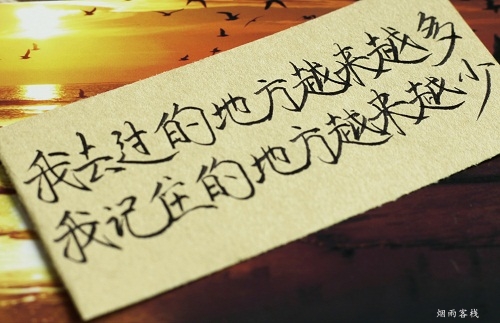 我去过的地方越来越多
我记住的地方越来越少
烟雨客栈